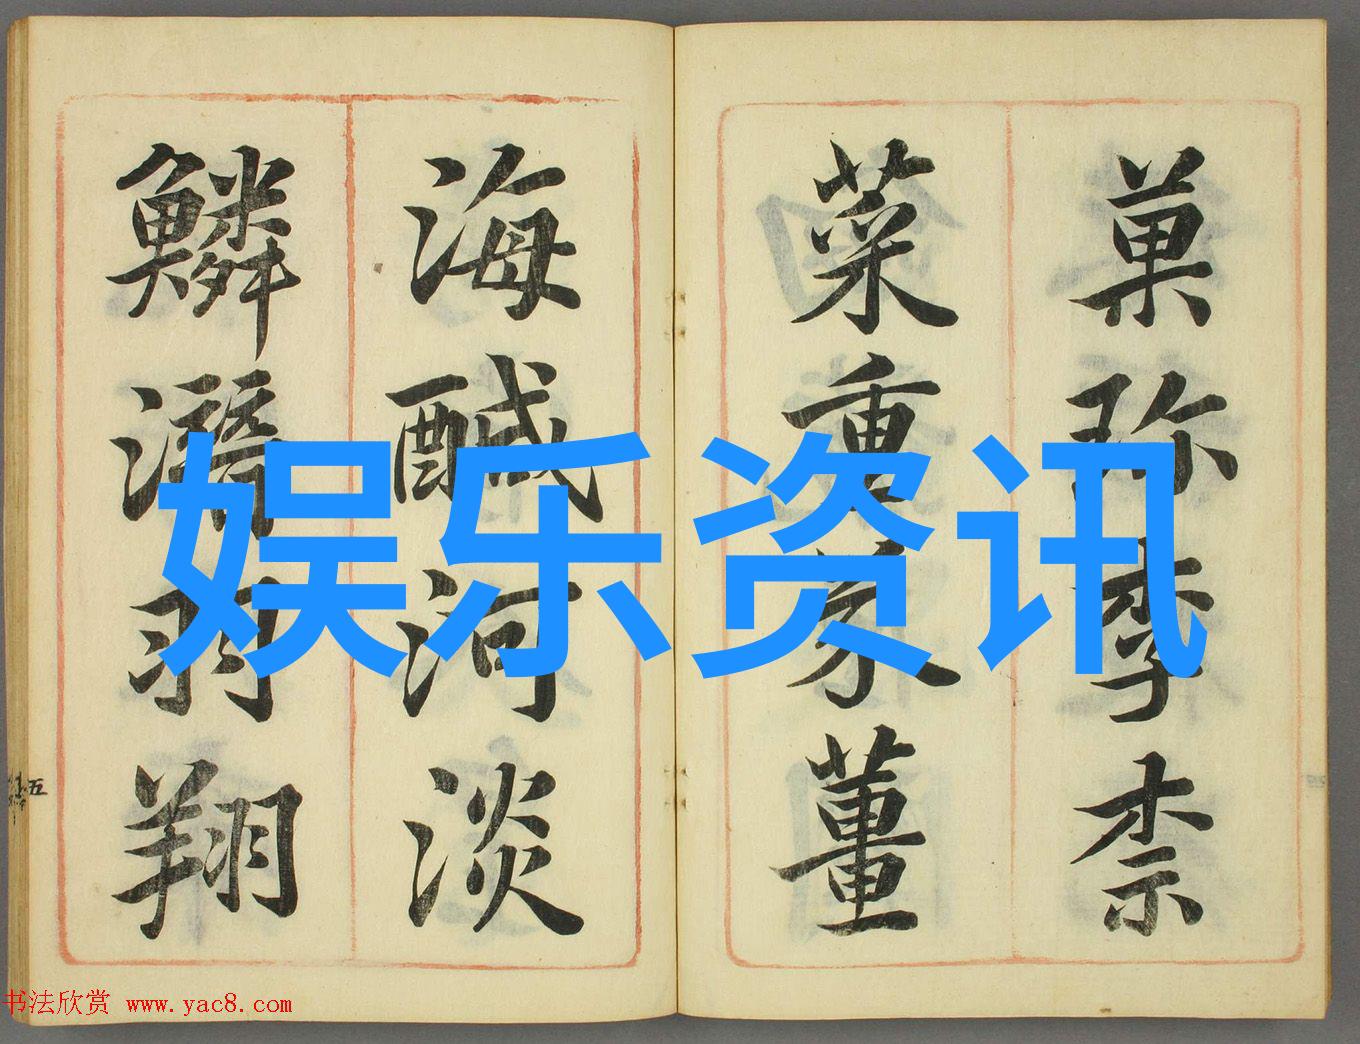 菓珎李柰
菜重芥薑
海醎河淡
鱗潛羽翔
五
娱乐资讯
书法欣赏 www.yac8.com